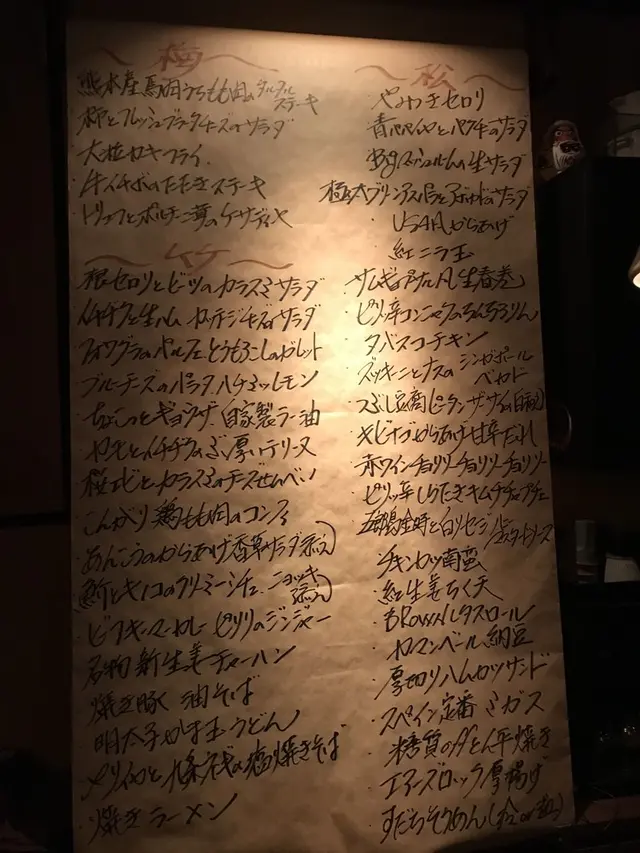 梅
熊本産馬肉うちもも肉のタルタルステーキ
柿とフレッシュブラータチーズのサラダ
大粒カキフライ
牛イチボのたたきステーキ
トリュフとポルチーニ茸のケサディヤ
竹
根セロリとビーツのカラスミサラダ
イチヂクと生ハム カッテージチーズのサラダ
フォワグラのパルフェとうもろこしのガレット
ブルーチーズのパラタ ハチミツレモン
ちょこっとギョウザ 自家製ラー油
イチヂクの 厚いテリーヌ
桜エビとカラスミのチーズせんべい
こんがり鶏もも肉のコンフィ
あんこうのからあげ 香草サラダ添え
鮭とキノコのクリーミーシチュー ニョッキ添え
ビーフキーマーカレー ピリリのジンジャー
名物 新生姜チャーハン
焼き豚 油そば
明太子かま玉うどん
九条ネギの 焼きそば
焼きラーメン
松
やみつきセロリ
青パパイヤとパクチーのサラダ
Bigマッシュルームの生サラダ
極太プリンアスパラとアボカドのサラダ
USA式からあげ
紅ニラ玉
サムギョプサル風 生春巻
ピリ辛コンニャクのちんちろりん
タバスコチキン
ズッキーニとナスの シンガポール
つぶし豆腐ピータンザーサイ
キビナゴからあげ 甘辛だれ
赤ワインチョリソーチョリソーチョリソー
ピリッ辛しらたきキムチチャプチェ
金時と白いソーセージ
チキンカツ南蛮
紅生姜ちく天
カマンベール納豆
厚切りハムカツサンド
スペイン定番 ミガス
糖質0ダとん平焼き
エアーズロック厚揚げ
すだちそうめん